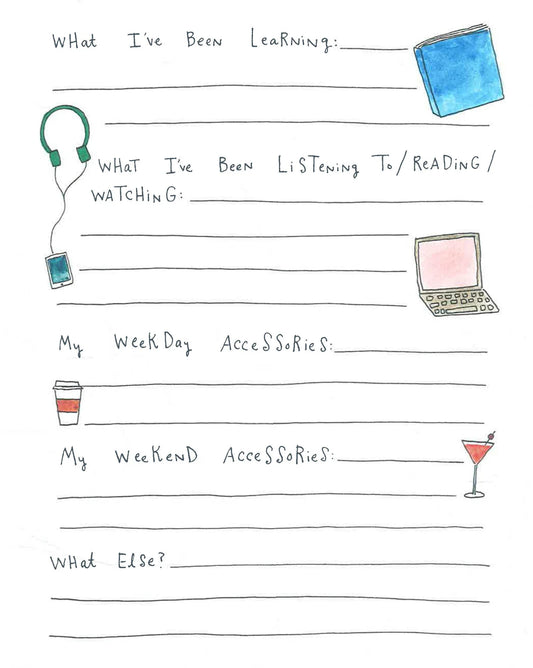 WHat I've Been LeaRNing:
WHaT I've Been LiSTening To/ReADiNG/
WATCHiNG:
My WeekDay AcceSSoRieS:
My WeekenD AcceSSoRieS:
WHat ElSe?